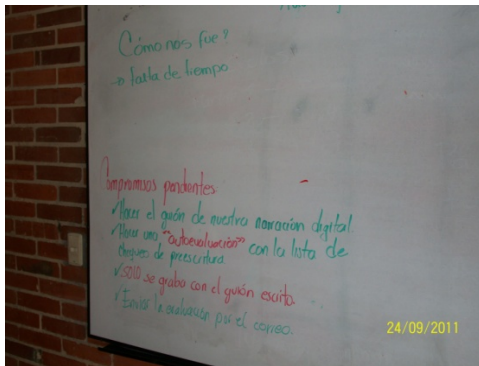 Cómo nos fue?
→ Falta de tiempo
Compromisos pendientes:
✓ Hacer el guión de nuestra narración digital.
✓ Hacer una "autoevaluación" con la lista de
chequeo de preescritura.
✓ SOLO se graba con el guión escrito.
✓ Enviar la evaluación por el correo.
24/09/2011